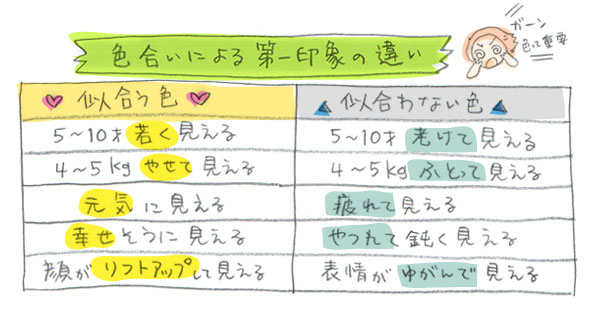 色合いによる第一印象の違い
ガーン
色って重要
似合う色
似合わない色
5~10才若く見える
5~10才老けて見える
4~5kgやせて見える
4~5kgふとって見える
元気に見える
疲れて見える
幸せそうに見える
やつれて鈍く見える
顔がリフトアップして見える
表情がゆがんで見える